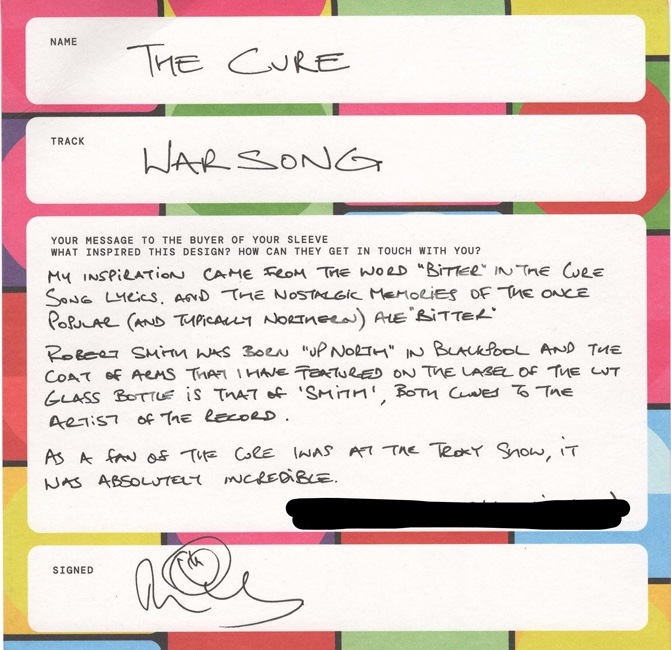 NAME
THE CURE
TRACK
WARSONG
YOUR MESSAGE TO THE BUYER OF YOUR SLEEVE
WHAT INSPIRED THIS DESIGN? HOW CAN THEY GET IN TOUCH WITH YOU?
MY INSPIRATION CAME FROM THE WORD "BITTER" IN THE CURE
SONG LYRICS. AND THE NOSTALGIC MEMORIES OF THE ONCE
POPULAR (AND TYPICALLY NORTHERN) ALE "BITTER"
ROBERT SMITH WAS BORN "UP NORTH" IN BLACKPOOL AND THE
COAT OF ARMS THAT I HAVE FEATURED ON THE LABEL OF THE CUT
GLASS BOTTLE IS THAT OF 'SMITH', BOTH CLUES TO THE
ARTIST OF THE RECORD.
AS A FAN OF THE CURE I WAS AT THE TROXY SHOW, IT
WAS ABSOLUTELY INCREDIBLE.
SIGNED